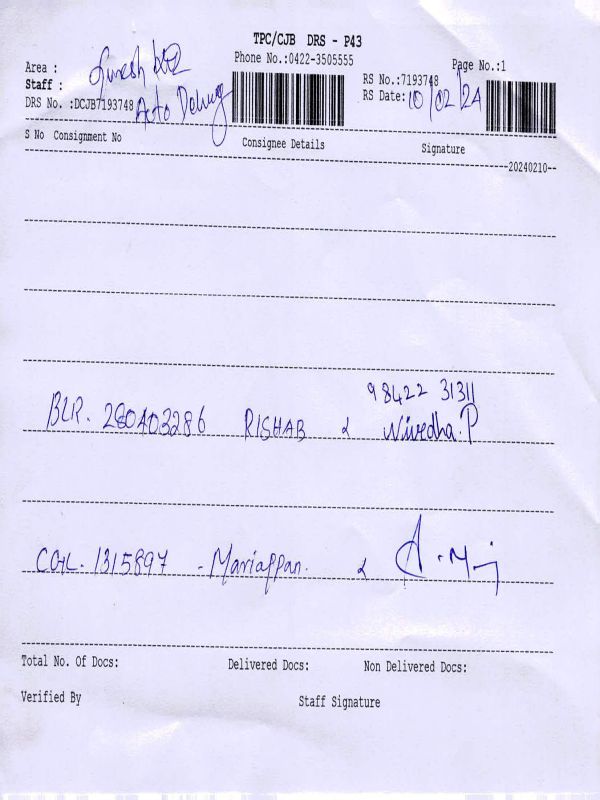 TPC/CJB DRS - P43
Phone No.:0422-3505555
Page No.:1
Area : Suresh
Staff :
RS No.:7193748
DRS No. :DCJB7193748 Auto
RS Date: 10/02/24
S No Consignment No Consignee Details Signature
20240210
98422 31311
BLR. 280403286 RISHAB Nivedha.P
1315897 - Mariappan.
Total No. Of Docs: Delivered Docs: Non Delivered Docs:
Verified By Staff Signature